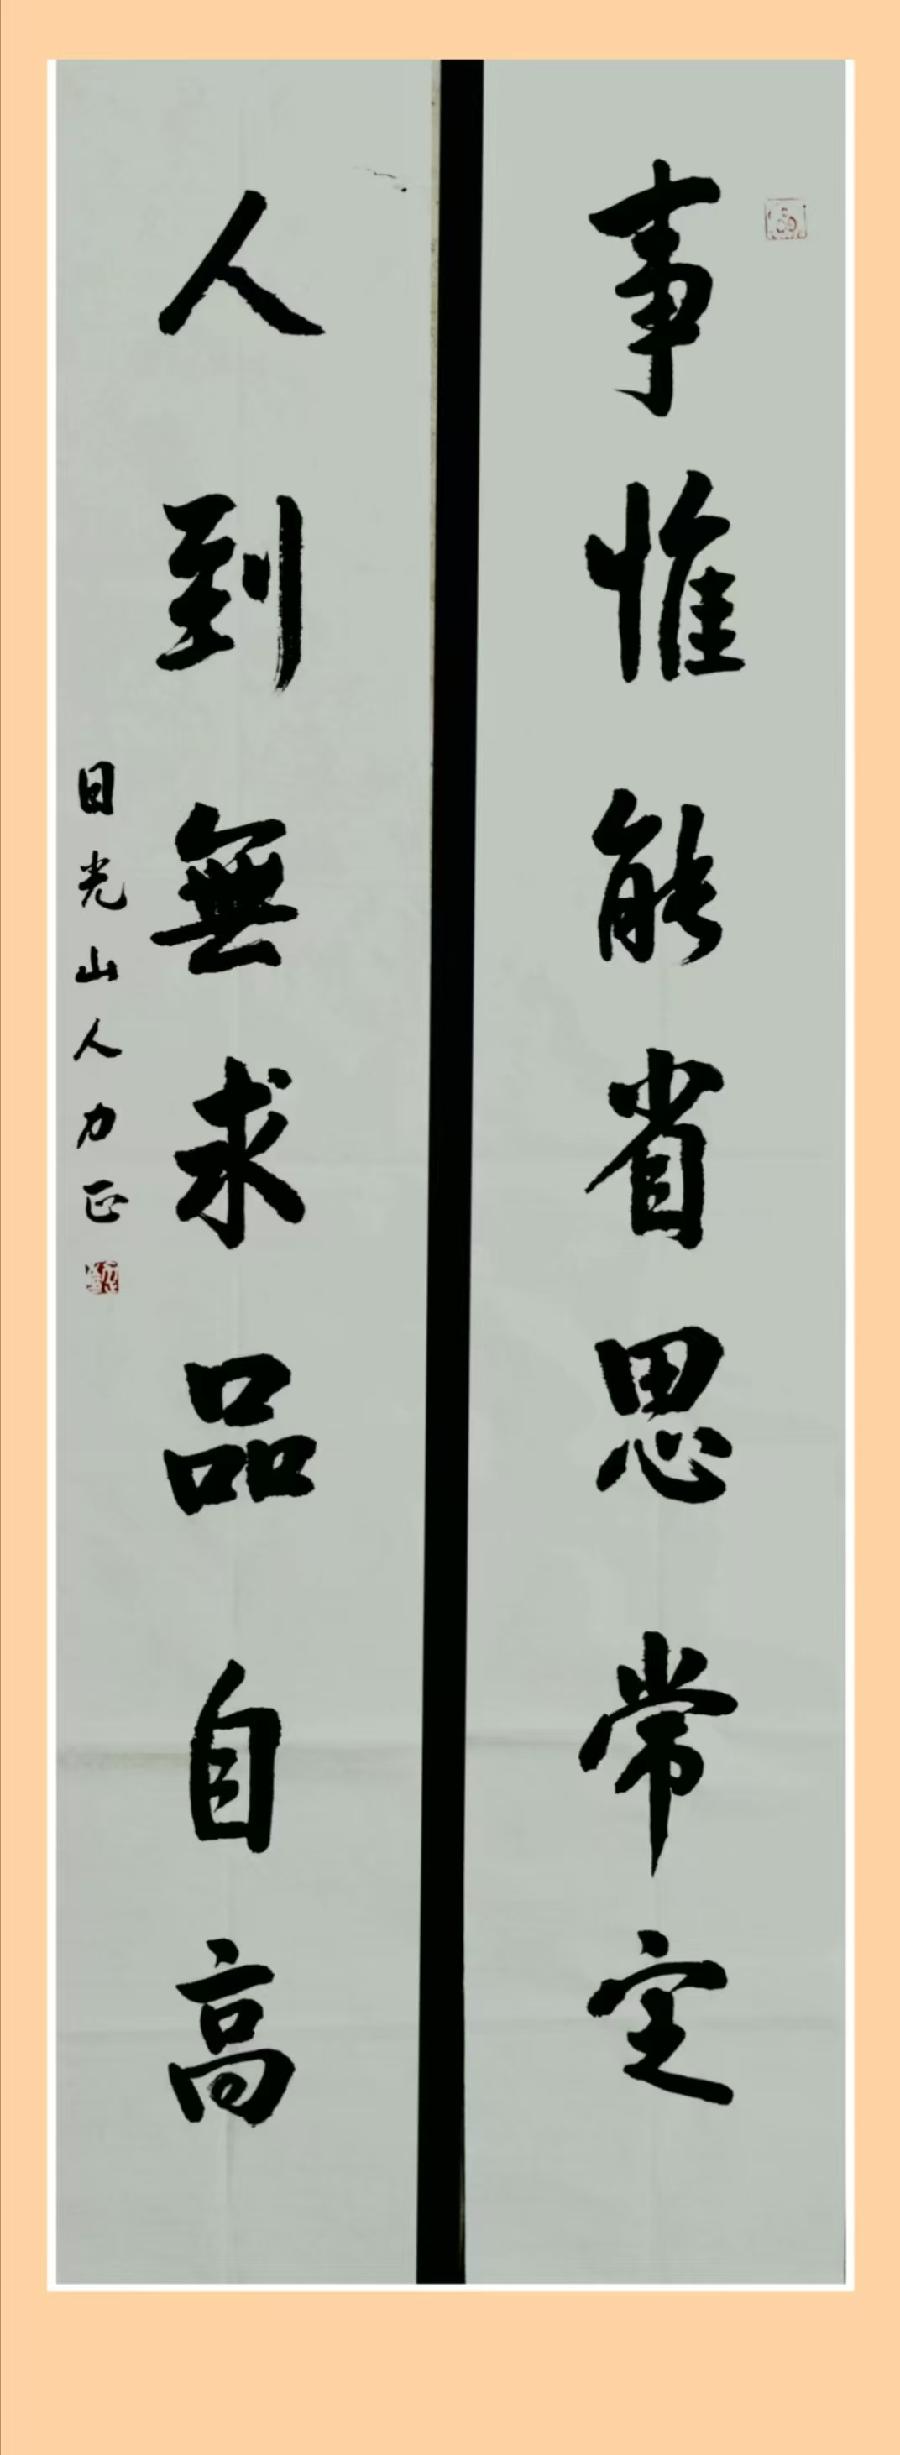 事惟能省思常定
人到無求品自高
日光山人力正